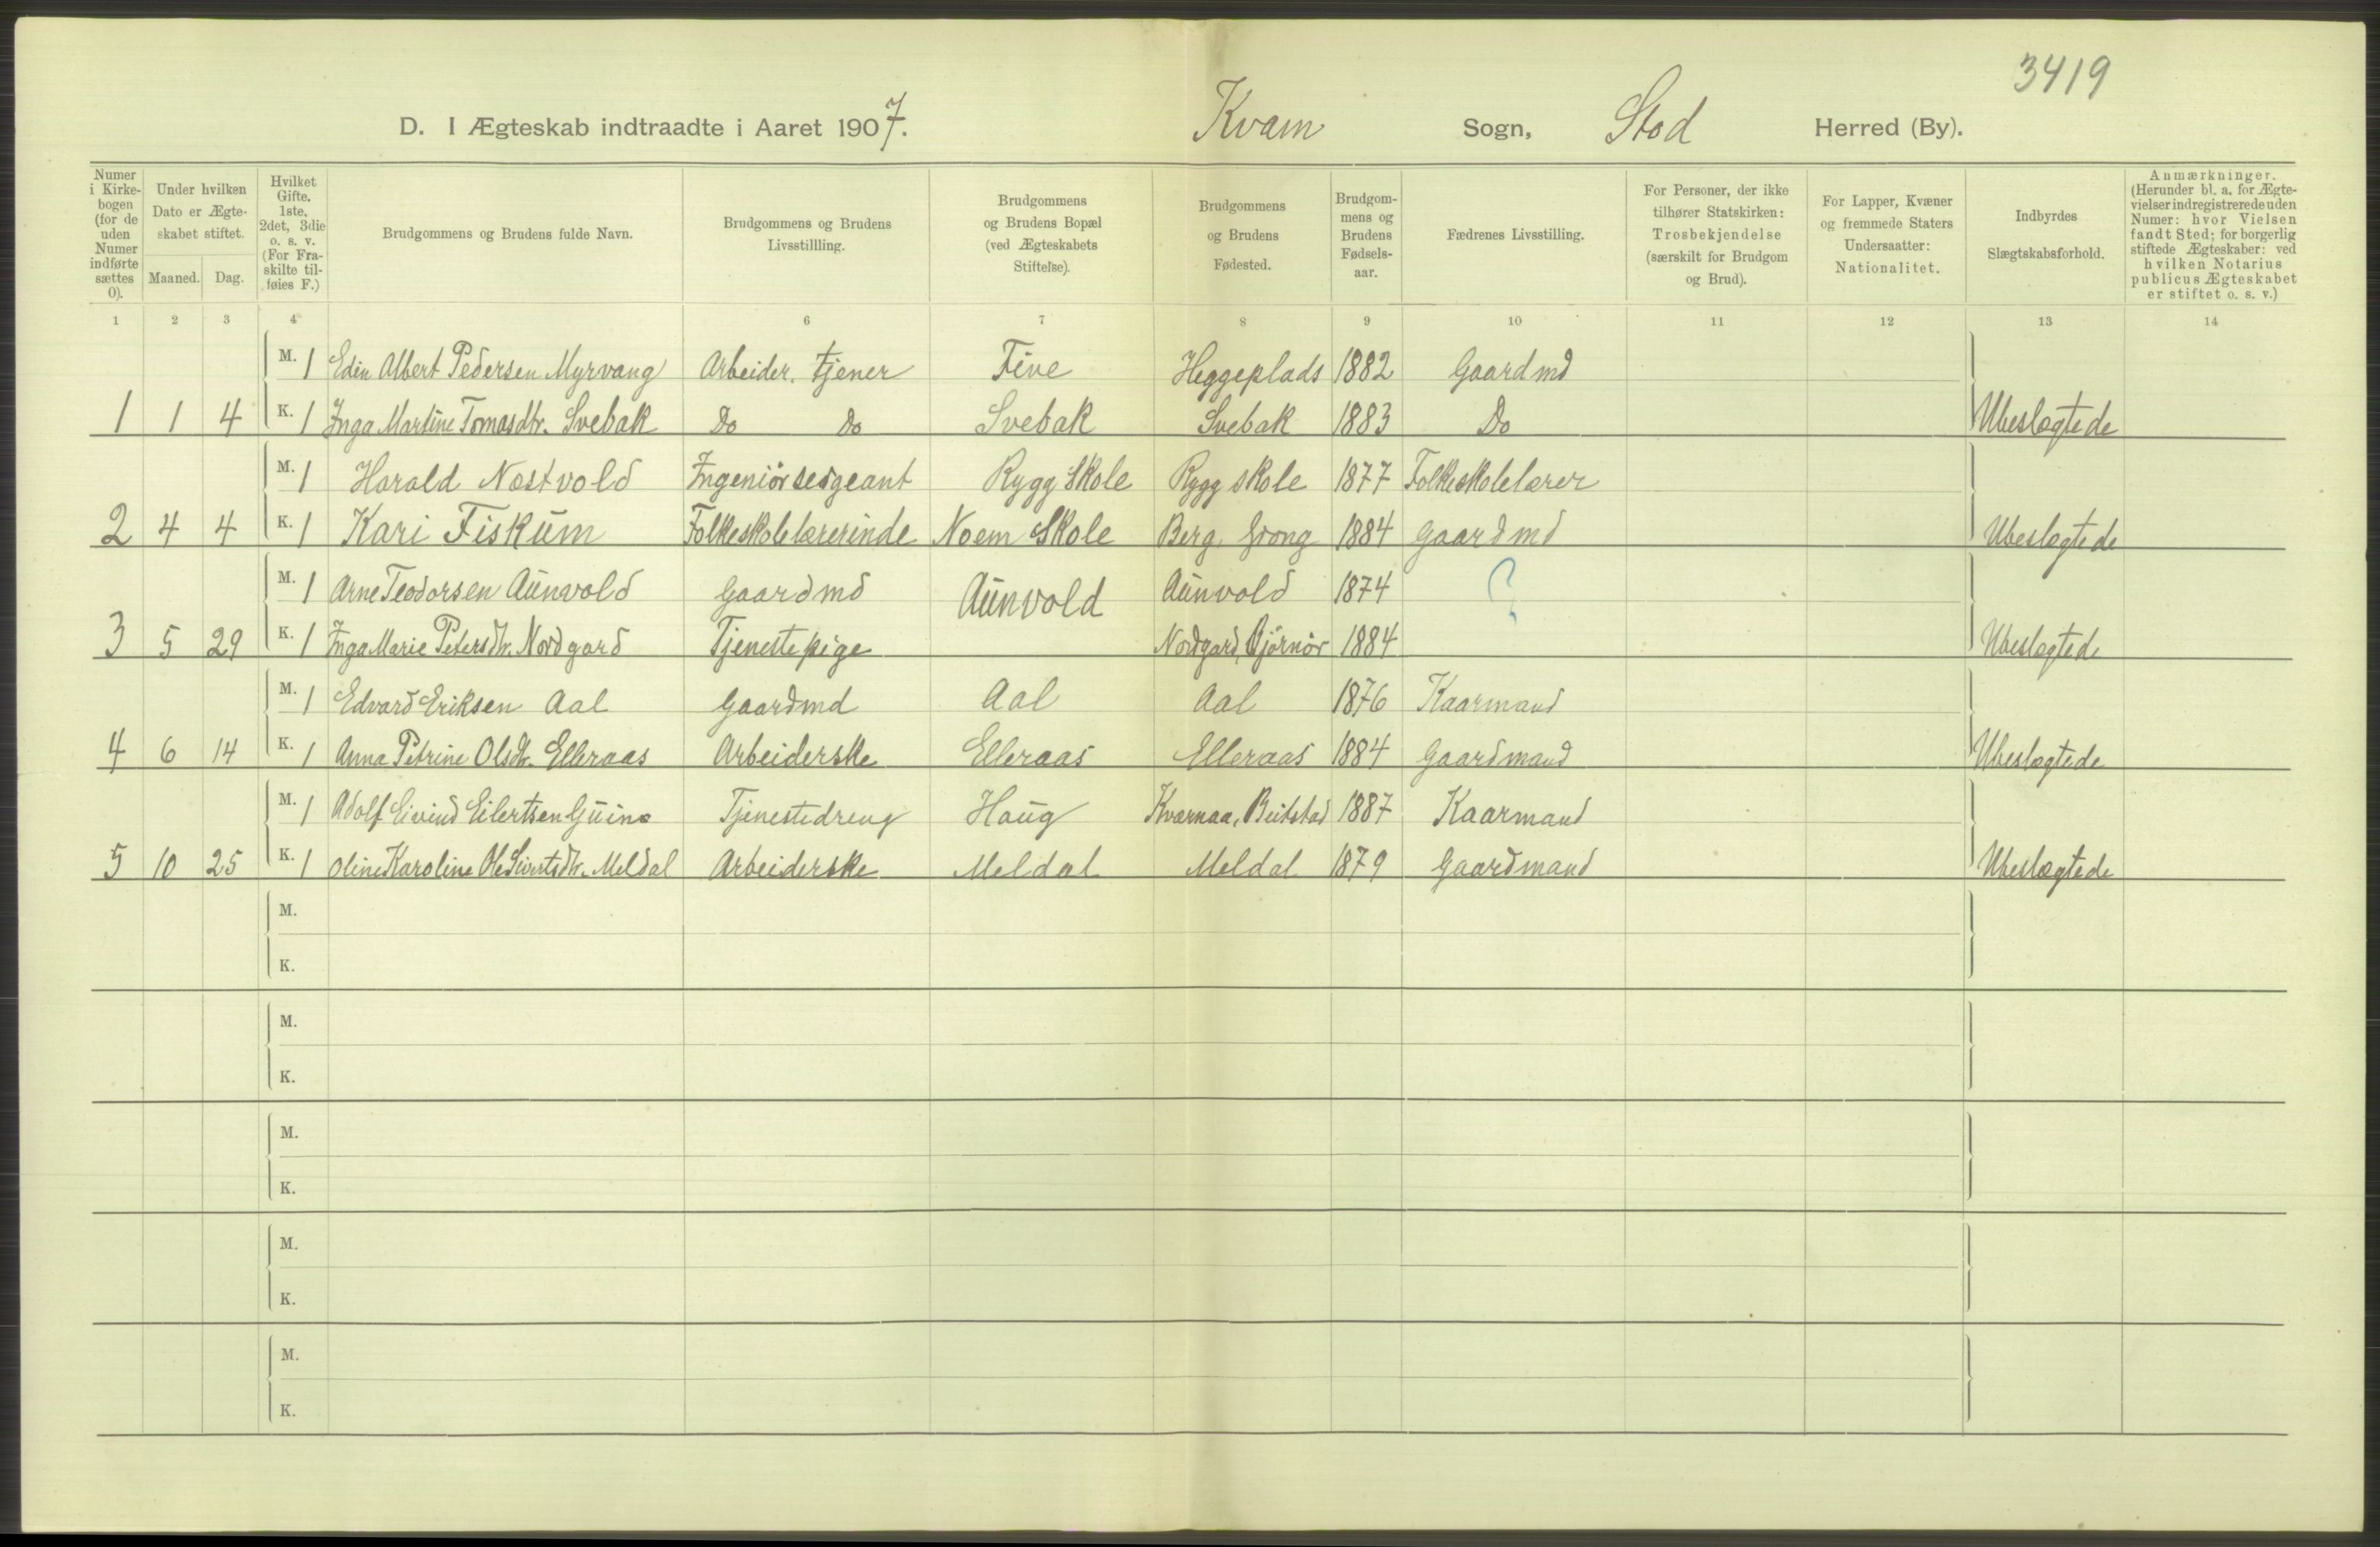 3419
D. I Ægteskab indtraadte i Aaret 1907. Kvam Sogn, Stod Herred (By).
Numer i Kirkebogen (for de uden Numer indførte sættes 0).
Under hvilken Dato er Ægteskabet stiftet.
Maaned. Dag.
Hvilket Gifte. 1ste, 2det, 3die o. s. v. (For Fraskilte tilføies F.)
Brudgommens og Brudens fulde Navn.
Brudgommens og Brudens Livsstillling.
Brudgommens og Brudens Bopæl (ved Ægteskabets Stiftelse).
Brudgommens og Brudens Fødested.
Brudgommens og Brudens Fødselsaar.
Fædrenes Livsstilling.
For Personer, der ikke tilhører Statskirken: Trosbekjendelse (særskilt for Brudgom og Brud).
For Lapper, Kvæner og fremmede Staters Undersaatter: Nationalitet.
Indbyrdes Slægtskabsforhold.
Anmærkninger. (Herunder bl. a. for Ægtevielser indregistrerede uden Numer: hvor Vielsen fandt Sted; for borgerlig stiftede Ægteskaber: ved hvilken Notarius publicus Ægteskabet er stiftet o. s. v.)
1 2 3 4 6 7 8 9 10 11 12 13 14
M. 1 Edin Albert Pedersen Myrvang Arbeider. tjener Five Heggeplads 1882 Gaardmd
1 1 4 K. 1 Inga Martine Tomasdtr. Svebak Do Do Svebak Svebak 1883 Do Ubeslægtede
M. 1 Harald Næstvold Ingeniørsergeant Rygg Skole Rygg skole 1877 Folkeskolelærer
2 4 4 K. 1 Kari Fiskum Folkeskolelærerinde Noem Skole Berg, Grong 1884 Gaardmd Ubeslægtede
M. 1 Arne Teodorsen Aunvold Gaardmd Aunvold Aunvold 1874 ?
3 5 29 K. 1 Inga Marie Petersdtr. Nordgard Tjenestepige Nordgard, Bjørnør 1884 Ubeslægtede
M. 1 Edvard Eriksen Aal Gaardmd Aal Aal 1876 Kaarmand
4 6 14 K. 1 Anna Petrine Olsdtr. Elleraas Arbeiderske Elleraas Elleraas 1884 Gaardmand Ubeslægtede
M. 1 Adolf Eivind Eilertsen Tjenestedreng Haug Kvarnaa, Beitstad 1887 Kaarmand
5 10 25 K. 1 Oline Karoline Ole Sivertsdtr. Meldal Arbeiderske Meldal Meldal 1879 Gaardmand Ubeslægtede
M.
K.
M.
K.
M.
K.
M.
K.
M.
K.